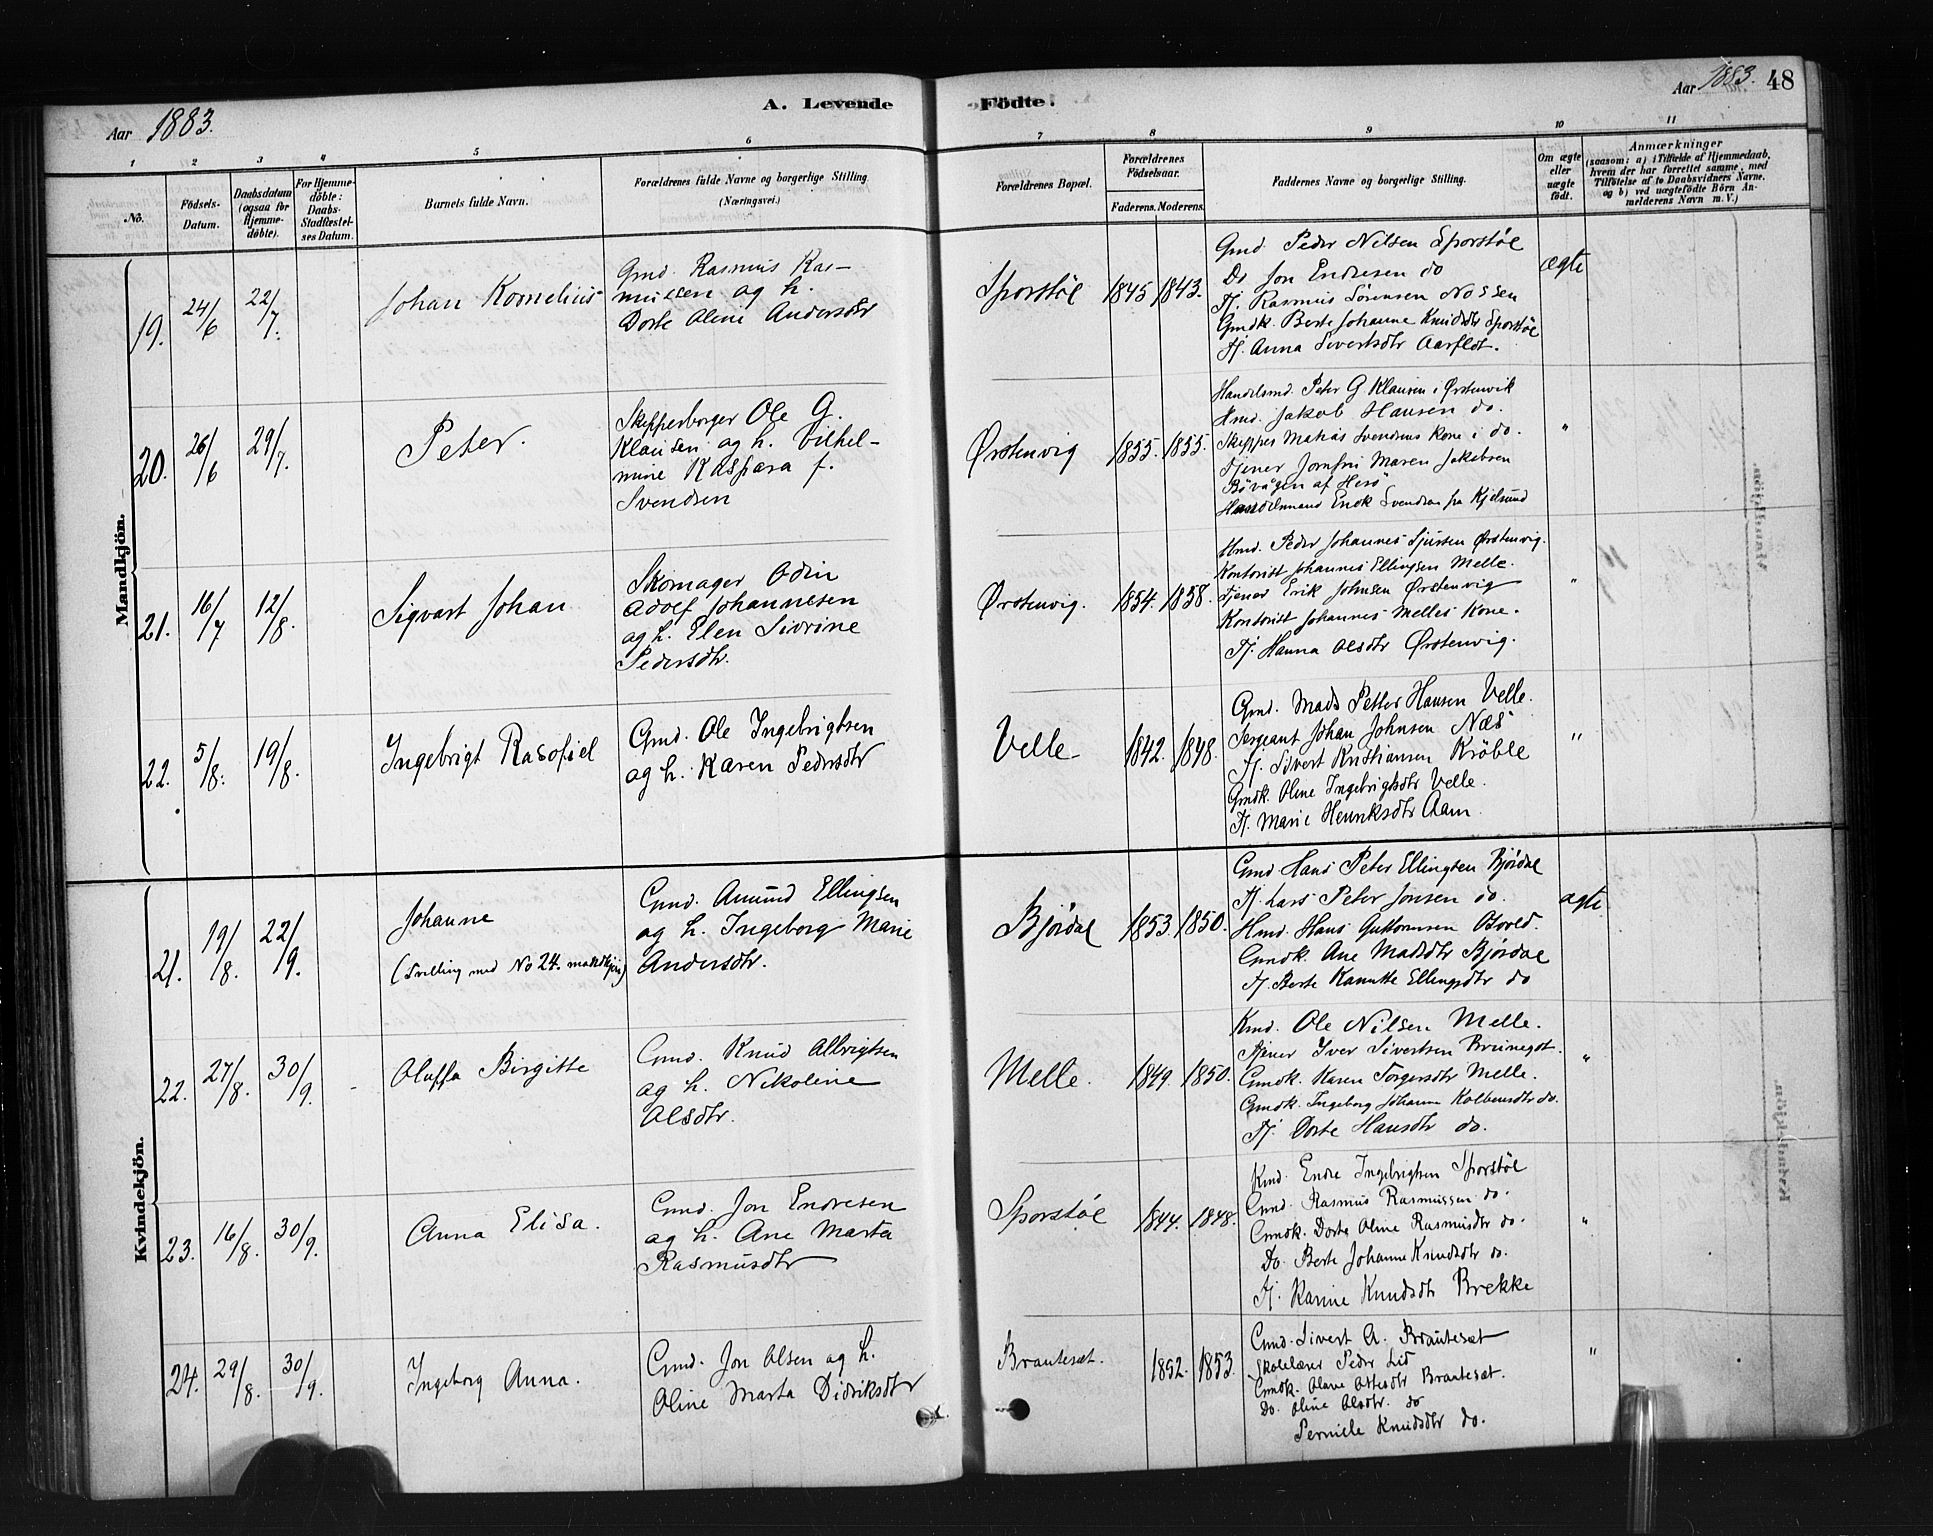 Aar 1883.
A. Levende
Födte.
Aar 1883. 48
1 2 3 4 5 6 7 8 9 10 11
No.
Födsels-
Datum.
Daabsdatum
(ogsaa for
Hjemme-
döbte).
For Hjemme-
döbte:
Daabs-
Stadfæstel-
ses Datum.
Barnets fulde Navn.
Forældrenes fulde Navne og borgerlige Stilling
(Næringsvei.)
Forældrenes Bopæl.
Forældrenes
Födselsaar.
Faderens. Moderens.
Faddernes Navne og borgerlige Stilling.
Om ægte
eller
uægte
födt.
Anmærkninger
(saasom: a) i Tilfælde af Hjemmedaab,
hvem der har forrettet samme, med
Tilföielse af to Daabsvidners Navne.
og b) ved uægtefödte Börn An-
melderens Navn m. V.)
Mandkjön.
19. 24/6 22/7. Johan Kornelius
Gmd. Rasmus Ras-
mussen og h.
Dorte Oline Andersdtr
Sporstøl 1845 1843.
Gmd Peder Nilsen Sporstøl
Do Jon Endresen do
Tj. Rasmus Sørensen Nossen
Gmdk. Berte Johanne Knudsdtr Sporstøl
Tj. Anna Sivertsdtr Aarflot.
ægte
20. 26/6 29/7. Peter.
Skipperborger Ole G.
Klausen og h. Vilhel-
mine Kaspara f.
Svendsen
Ørstenvig 1855. 1855.
Handelsmd. Peter G Klausen i Ørstenvik
Hmd. Jakob Hansen do.
Skipper Matias Svendsens Kone i do.
Tjener Jomfru Maren Jakobsen
Bövågen af Herö
Handelsmand Enok Svendsen fra Kjelsund
"
21. 16/7 12/8. Sigvart Johan
Skomager Odin
Adolf Johannesen
og h. Elen Sivrine
Pedersdtr.
Ørstenvig. 1854. 1858.
Hmd. Peder Johannes Sjursen Ørstenvig.
Kontorist Johannes Ellingsen Melle.
Tjener Erik Johnsen Ørstenvig
Kontorist Johannes Melles Kone.
Tj. Hanna Olsdtr Ørstenvig.
"
22. 5/8. 19/8. Ingebrigt Rasofiel
Gmd. Ole Ingebrigtsen
og h. Karen Pedersdtr
Velle 1842. 1848.
Gmd. Mads Petter Hansen Velle.
Sergeant Johan Johnsen Næs
Tj. Sivert Kristiansen Kröble
Gmdk. Oline Ingebrigtsdtr Velle.
Tj. Marie Henriksdtr Aam.
"
Kvindekjön.
21. 19/8. 22/9. Johanne
(Tvilling med No 24. mandkjön)
Gmd. Amund Ellingsen
og h. Ingeborg Marie
Andersdtr.
Bjørdal 1853. 1850.
Gmd Hans Peter Ellingsen Bjørdal
Tj. Lars Peter Jonsen do.
Hmd. Hans Guttormsen Osvold.
Gmdk. Ane Madsdtr Bjørdal
Tj. Berte Kanutte Ellingsdtr do
ægte
22. 27/8. 30/9. Oluffa Birgitte
Gmd. Knud Albrigtsen
og h. Nikoline
Olsdtr.
Melle. 1849. 1850.
Kmd. Ole Nilsen Melle.
Tjener Iver Sivertsen Brunegot.
Gmdk. Karen Torgersdtr Melle.
Gmdk. Ingeborg Johanne Kolbensdtr do.
Tj. Dorte Hansdtr do.
"
23. 16/8. 30/9. Anna Elisa.
Gmd. Jon Endresen
og h. Ane Marta
Rasmusdtr
Sporstøl 1844. 1848.
Kmd. Endre Ingebrigtsen Sporstøl
Gmd. Rasmus Rasmussen do.
Gmdk. Dorte Oline Rasmusdtr do.
Do. Berte Johanne Knudsdtr do.
Tj. Karine Knudsdtr Brekke
"
24. 29/8. 30/9. Ingeborg Anna.
Gmd. Jon Olsen og h.
Oline Marta Didriksdtr
Brautesæt. 1852. 1853.
Gmd. Sivert A. Brautesæt
Skolelærer Peder Lid
Gmdk. Olave Ottesdtr Brautesæt.
Do. Oline Olsdtr. do
Pernille Knudsdtr do.
"